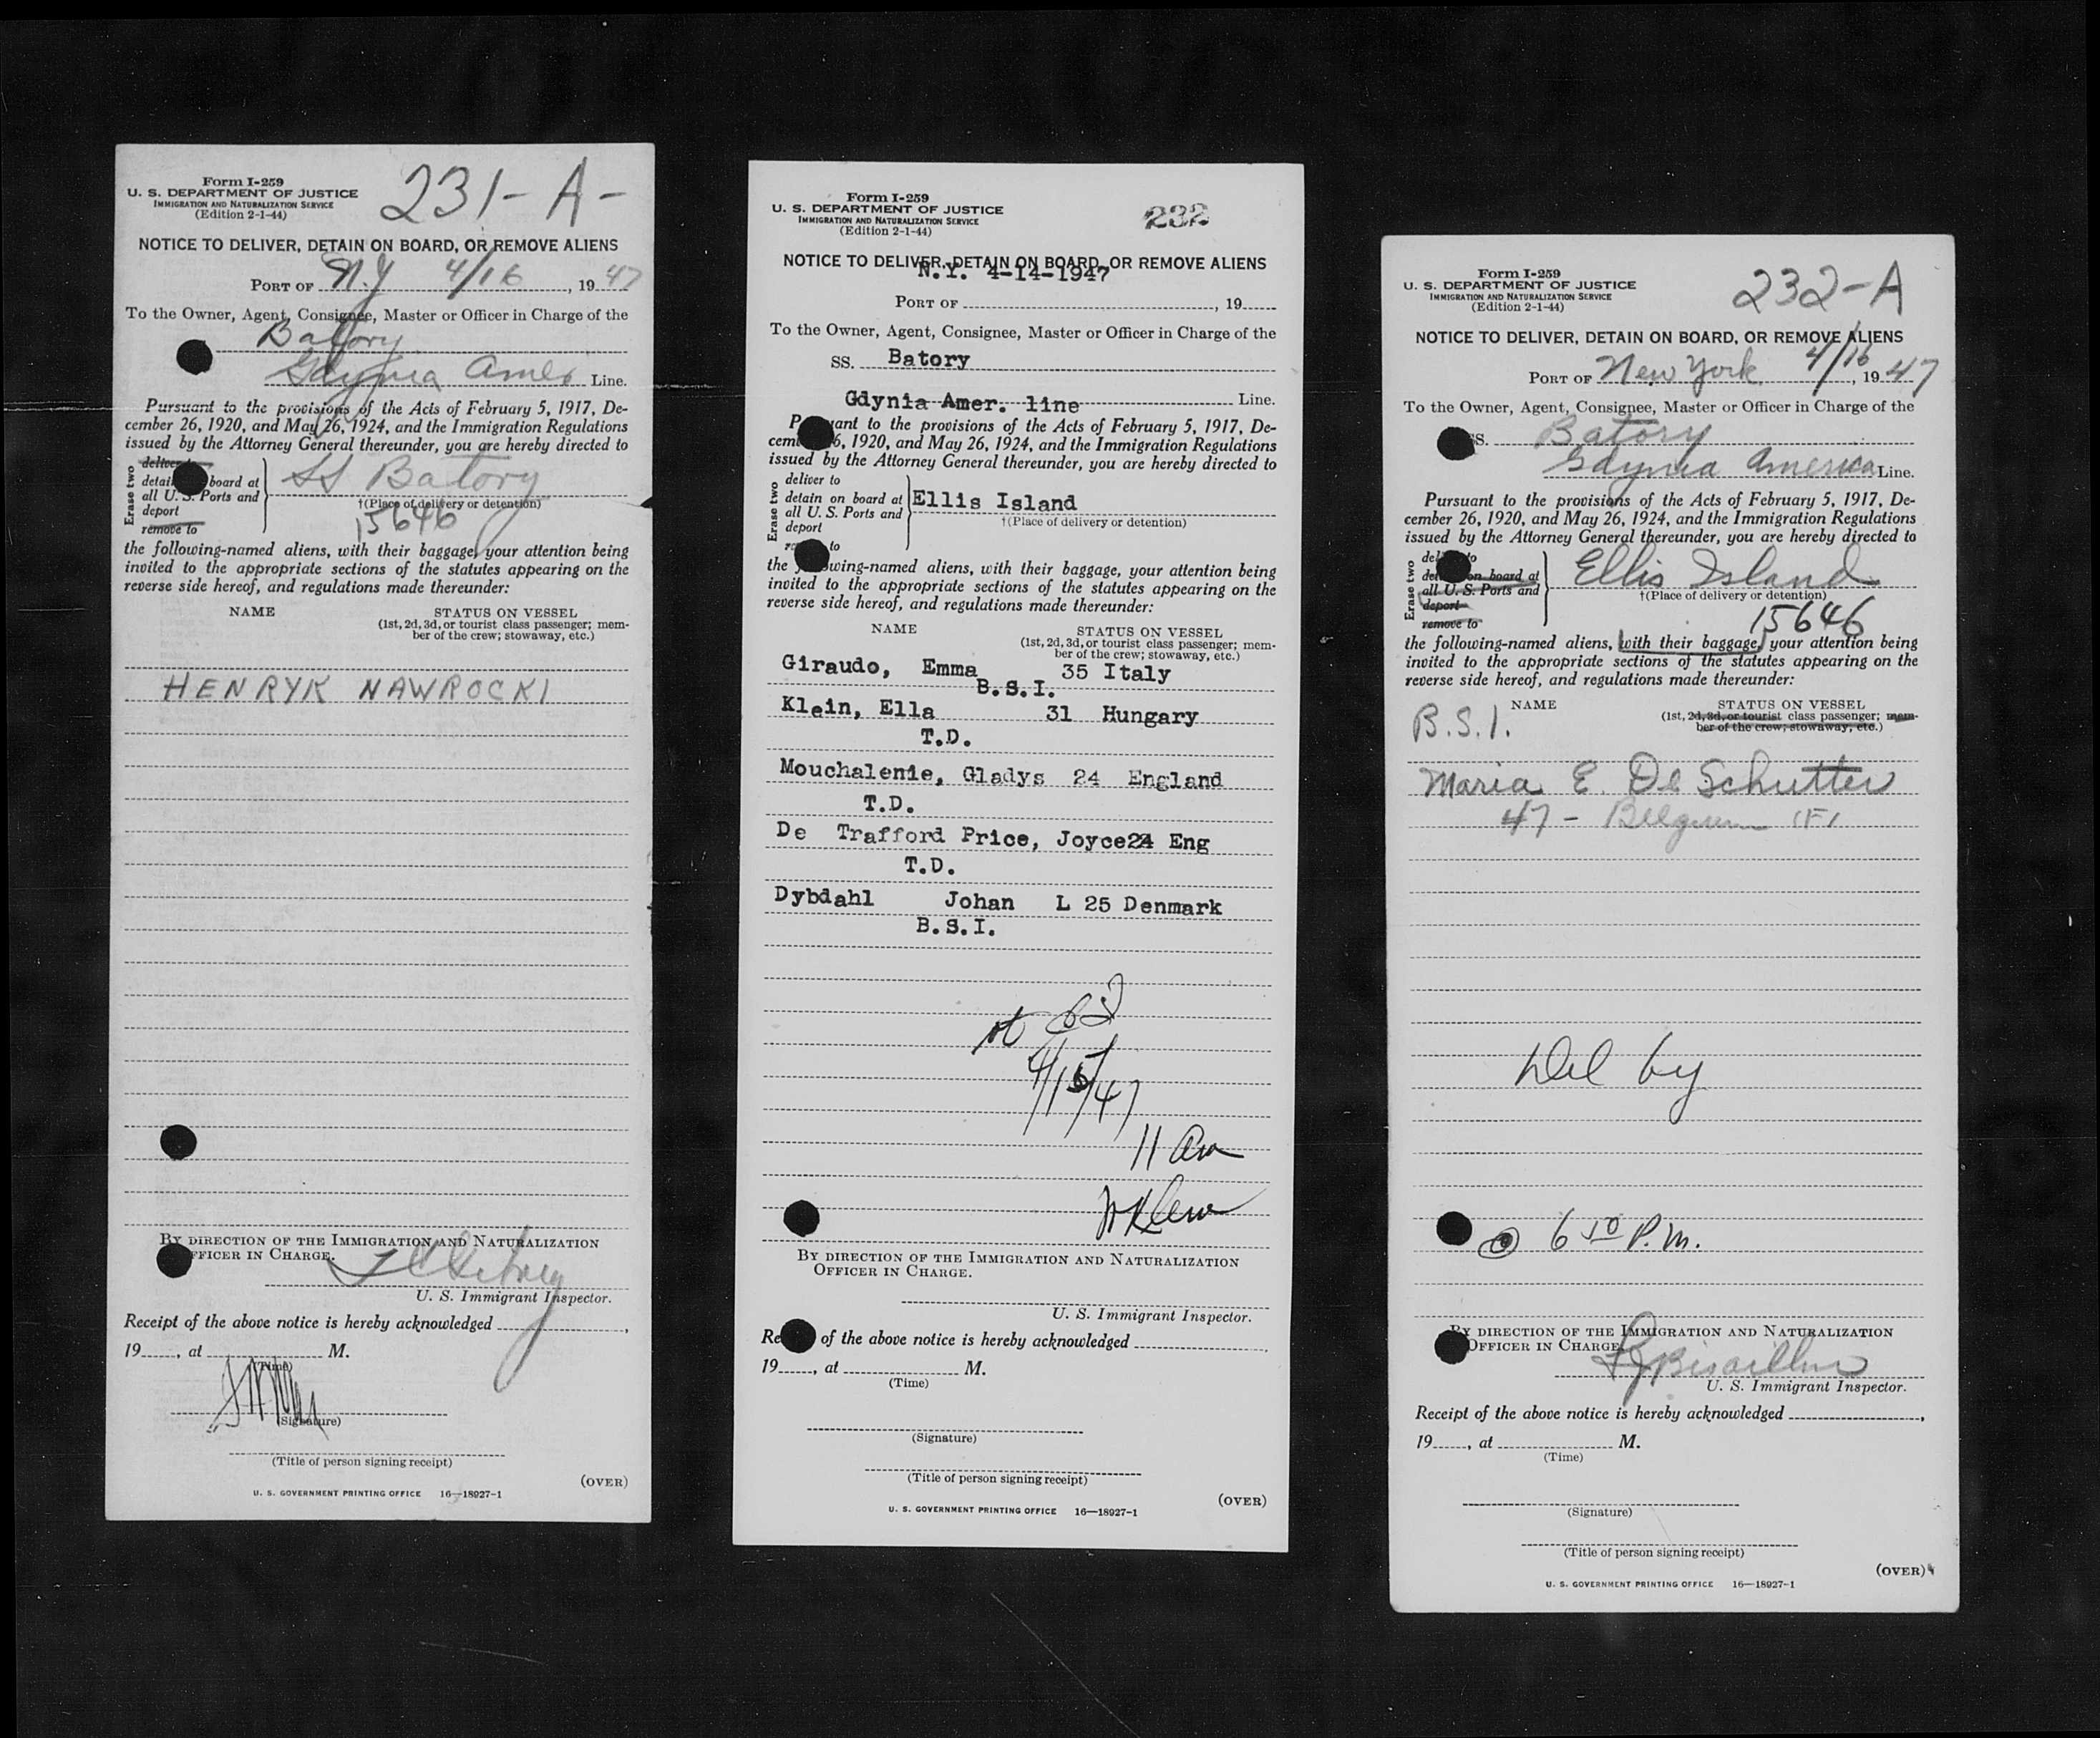 Form I-259
U. S. DEPARTMENT OF JUSTICE
IMMIGRATION AND NATURALIZATION SERVICE
(Edition 2-1-44)
231-A-
NOTICE TO DELIVER, DETAIN ON BOARD, OR REMOVE ALIENS
PORT OF N.Y 4/16, 1947
To the Owner, Agent, Consignee, Master or Officer in Charge of the
Batory
Gdynia Amer Line.
Pursuant to the provisions of the Acts of February 5, 1917, De-
cember 26, 1920, and May 26, 1924, and the Immigration Regulations
issued by the Attorney General thereunder, you are hereby directed to
Erase two
deliver
detain board at
all U. S. Ports and
deport
remove to
SS Batory
†(Place of delivery or detention)
15646
the following-named aliens, with their baggage, your attention being
invited to the appropriate sections of the statutes appearing on the
reverse side hereof, and regulations made thereunder:
NAME STATUS ON VESSEL
(1st, 2d, 3d, or tourist class passenger; mem-
ber of the crew; stowaway, etc.)
HENRYK NAWROCKI
BY DIRECTION OF THE IMMIGRATION AND NATURALIZATION
OFFICER IN CHARGE.
U. S. Immigrant Inspector.
Receipt of the above notice is hereby acknowledged ,
19 , at M.
(Time)
(Signature)
(Title of person signing receipt)
(OVER)
U. S. GOVERNMENT PRINTING OFFICE 16—18927-1
Form I-259
U. S. DEPARTMENT OF JUSTICE
IMMIGRATION AND NATURALIZATION SERVICE
(Edition 2-1-44)
232
NOTICE TO DELIVER, DETAIN ON BOARD, OR REMOVE ALIENS
N.Y. 4-14-1947
PORT OF , 19
To the Owner, Agent, Consignee, Master or Officer in Charge of the
SS. Batory
Gdynia Amer. line Line.
P ant to the provisions of the Acts of February 5, 1917, De-
cem 6, 1920, and May 26, 1924, and the Immigration Regulations
issued by the Attorney General thereunder, you are hereby directed to
Erase two
deliver to
detain on board at
all U. S. Ports and
deport
re to
Ellis Island
†(Place of delivery or detention)
the wing-named aliens, with their baggage, your attention being
invited to the appropriate sections of the statutes appearing on the
reverse side hereof, and regulations made thereunder:
NAME STATUS ON VESSEL
(1st, 2d, 3d, or tourist class passenger; mem-
ber of the crew; stowaway, etc.)
Giraudo, Emma 35 Italy
B.S.I.
Klein, Ella 31 Hungary
T.D.
Mouchalenie, Gladys 24 England
T.D.
De Trafford Price, Joyce24 Eng
T.D.
Dybdahl Johan L 25 Denmark
B.S.I.
4/15/47
11 am
BY DIRECTION OF THE IMMIGRATION AND NATURALIZATION
OFFICER IN CHARGE.
U. S. Immigrant Inspector.
Re of the above notice is hereby acknowledged ,
19 , at M.
(Time)
(Signature)
(Title of person signing receipt)
(OVER)
U. S. GOVERNMENT PRINTING OFFICE 16—18927-1
Form I-259
U. S. DEPARTMENT OF JUSTICE
IMMIGRATION AND NATURALIZATION SERVICE
(Edition 2-1-44)
232-A
NOTICE TO DELIVER, DETAIN ON BOARD, OR REMOVE ALIENS
PORT OF New York 4/16, 1947
To the Owner, Agent, Consignee, Master or Officer in Charge of the
SS. Batory
Gdynia America Line.
Pursuant to the provisions of the Acts of February 5, 1917, De-
cember 26, 1920, and May 26, 1924, and the Immigration Regulations
issued by the Attorney General thereunder, you are hereby directed to
Erase two
del to
det on board at
all U. S. Ports and
deport
remove to
Ellis Island
†(Place of delivery or detention)
15646
the following-named aliens, with their baggage, your attention being
invited to the appropriate sections of the statutes appearing on the
reverse side hereof, and regulations made thereunder:
NAME STATUS ON VESSEL
(1st, 2d, 3d, or tourist class passenger; mem-
ber of the crew; stowaway, etc.)
B.S.I.
Maria E. De Schutter
47 - Belgium (F)
Del by
@ 6 50 P.M.
BY DIRECTION OF THE IMMIGRATION AND NATURALIZATION
OFFICER IN CHARGE
U. S. Immigrant Inspector.
Receipt of the above notice is hereby acknowledged ,
19 , at M.
(Time)
(Signature)
(Title of person signing receipt)
(OVER)
U. S. GOVERNMENT PRINTING OFFICE 16—18927-1